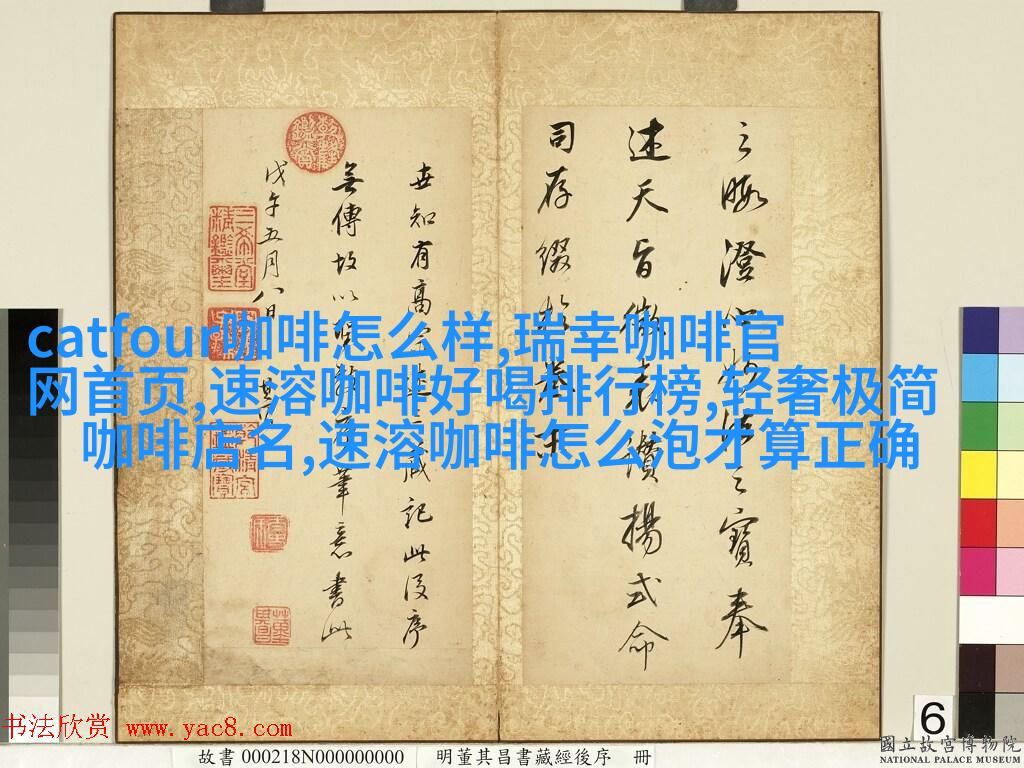 之晦澄心妙法之寶奉
述天旨微表讚揚式命
司存綴於卷末
世知有高宗述三藏記此後序
無傳故以聖教序筆意書此
戊午五月八日
catfour咖啡怎么样,瑞幸咖啡官
网首页,速溶咖啡好喝排行榜,轻奢极简
咖啡店名,速溶咖啡怎么泡才算正确
書法欣賞 www.yac8.com
故書 000218N000000000 明董其昌書藏經後序 冊
6
國立故宮博物院
NATIONAL PALACE MUSEUM